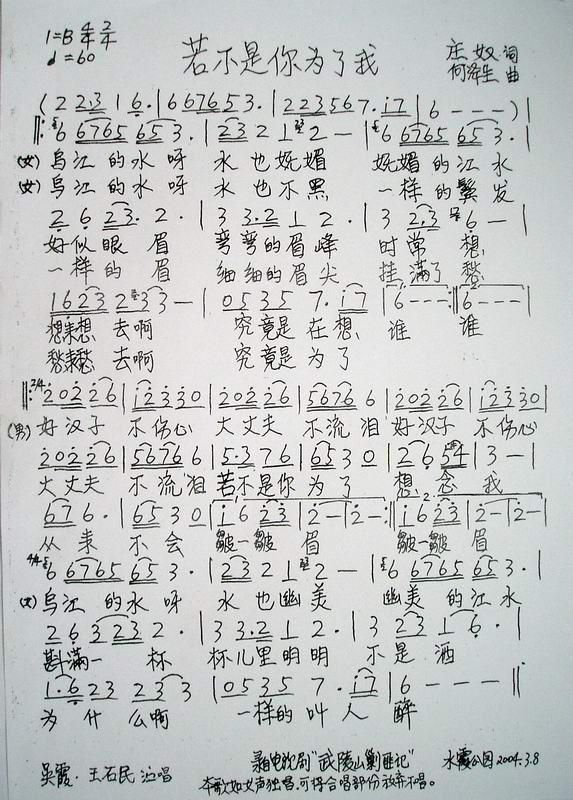 1=B 4/4 2/4
♩=60
若不是你为了我
庄奴 词
何泽生 曲
( 2 2 2·3 1 6· | 6 6765 3· | 2 2 3 5 6 7· i7 | 6 - - - ) |
‖: 6 6765 65 3· | 23 2 1 2 — | 6 6765 65 3· |
(女) 乌江 的水 呀 水 也 妩媚 妩媚 的 江 水
(女) 乌江 的水 呀 水 也 不 黑 一样 的 鬓 发
2 6 23· 2 · | 3 3·2 1 2 · | 3 2·3 6 — |
好似 眼 眉 弯弯的眉峰 时常 想
一样 的 眉 细细的眉尖 挂满了 愁
1623 2 3 3 — | 0535 7· i7 | 6 - - - :‖ 6 - - - |
想来想 去啊 究竟是 在想 谁 谁
愁来愁 去啊 究竟是 为了
‖: 2/4 202 26 | i2 330 | 202 26 | 5676 6 | 202 26 | i2 330 |
(男) 好汉子 不伤心 大丈夫 不流泪 好汉子 不伤心
202 26 | 5676 6 | 5·3 76 | 65 3 0 | 2 6 54 | 3 — |
大丈夫 不流泪 若不是你 为了 想 念 我
67 6· | 65 3 0 | i 6 23 | 2 — | 2 — :‖ i 6 23 | 2 — | 2 — |
从来 不会 皱一皱 眉 皱一皱 眉
4/4 6 6765 65 3 · | 23 2 1 2 — | 6 6765 65 3· |
(女) 乌江 的水 呀 水 也幽美 幽美 的江水
2 6 3 23 2 · | 3 3·2 1 2 · | 3 23 1 6 · |
斟满一 杯 杯儿里明明 不是 酒
1·6 23 2 3 3 | 0535 7 · i7 | 6 - - - ‖
为什 么啊 一样的 叫人 醉
吴霞·王石民 演唱
录自电视剧“武陵山剿匪记”
水霞公园 2004.3.8
本歌如女声独唱,可将合唱部份放弃不唱。